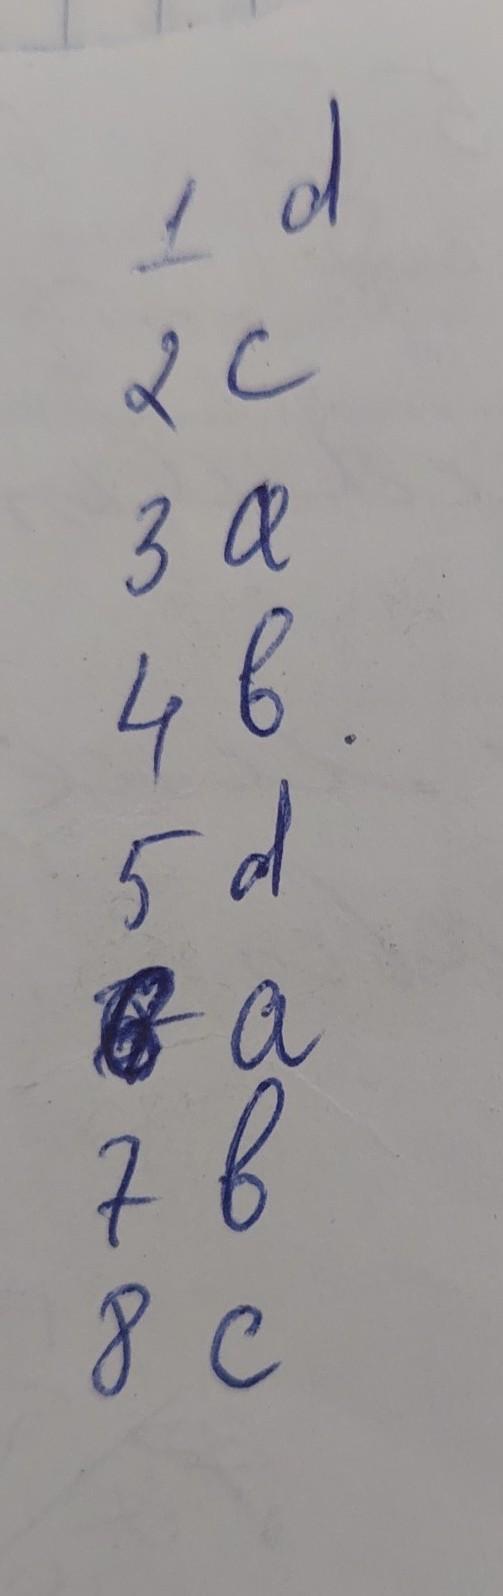 1 d
2 c
3 a
4 b
5 d
6 a
7 b
8 c